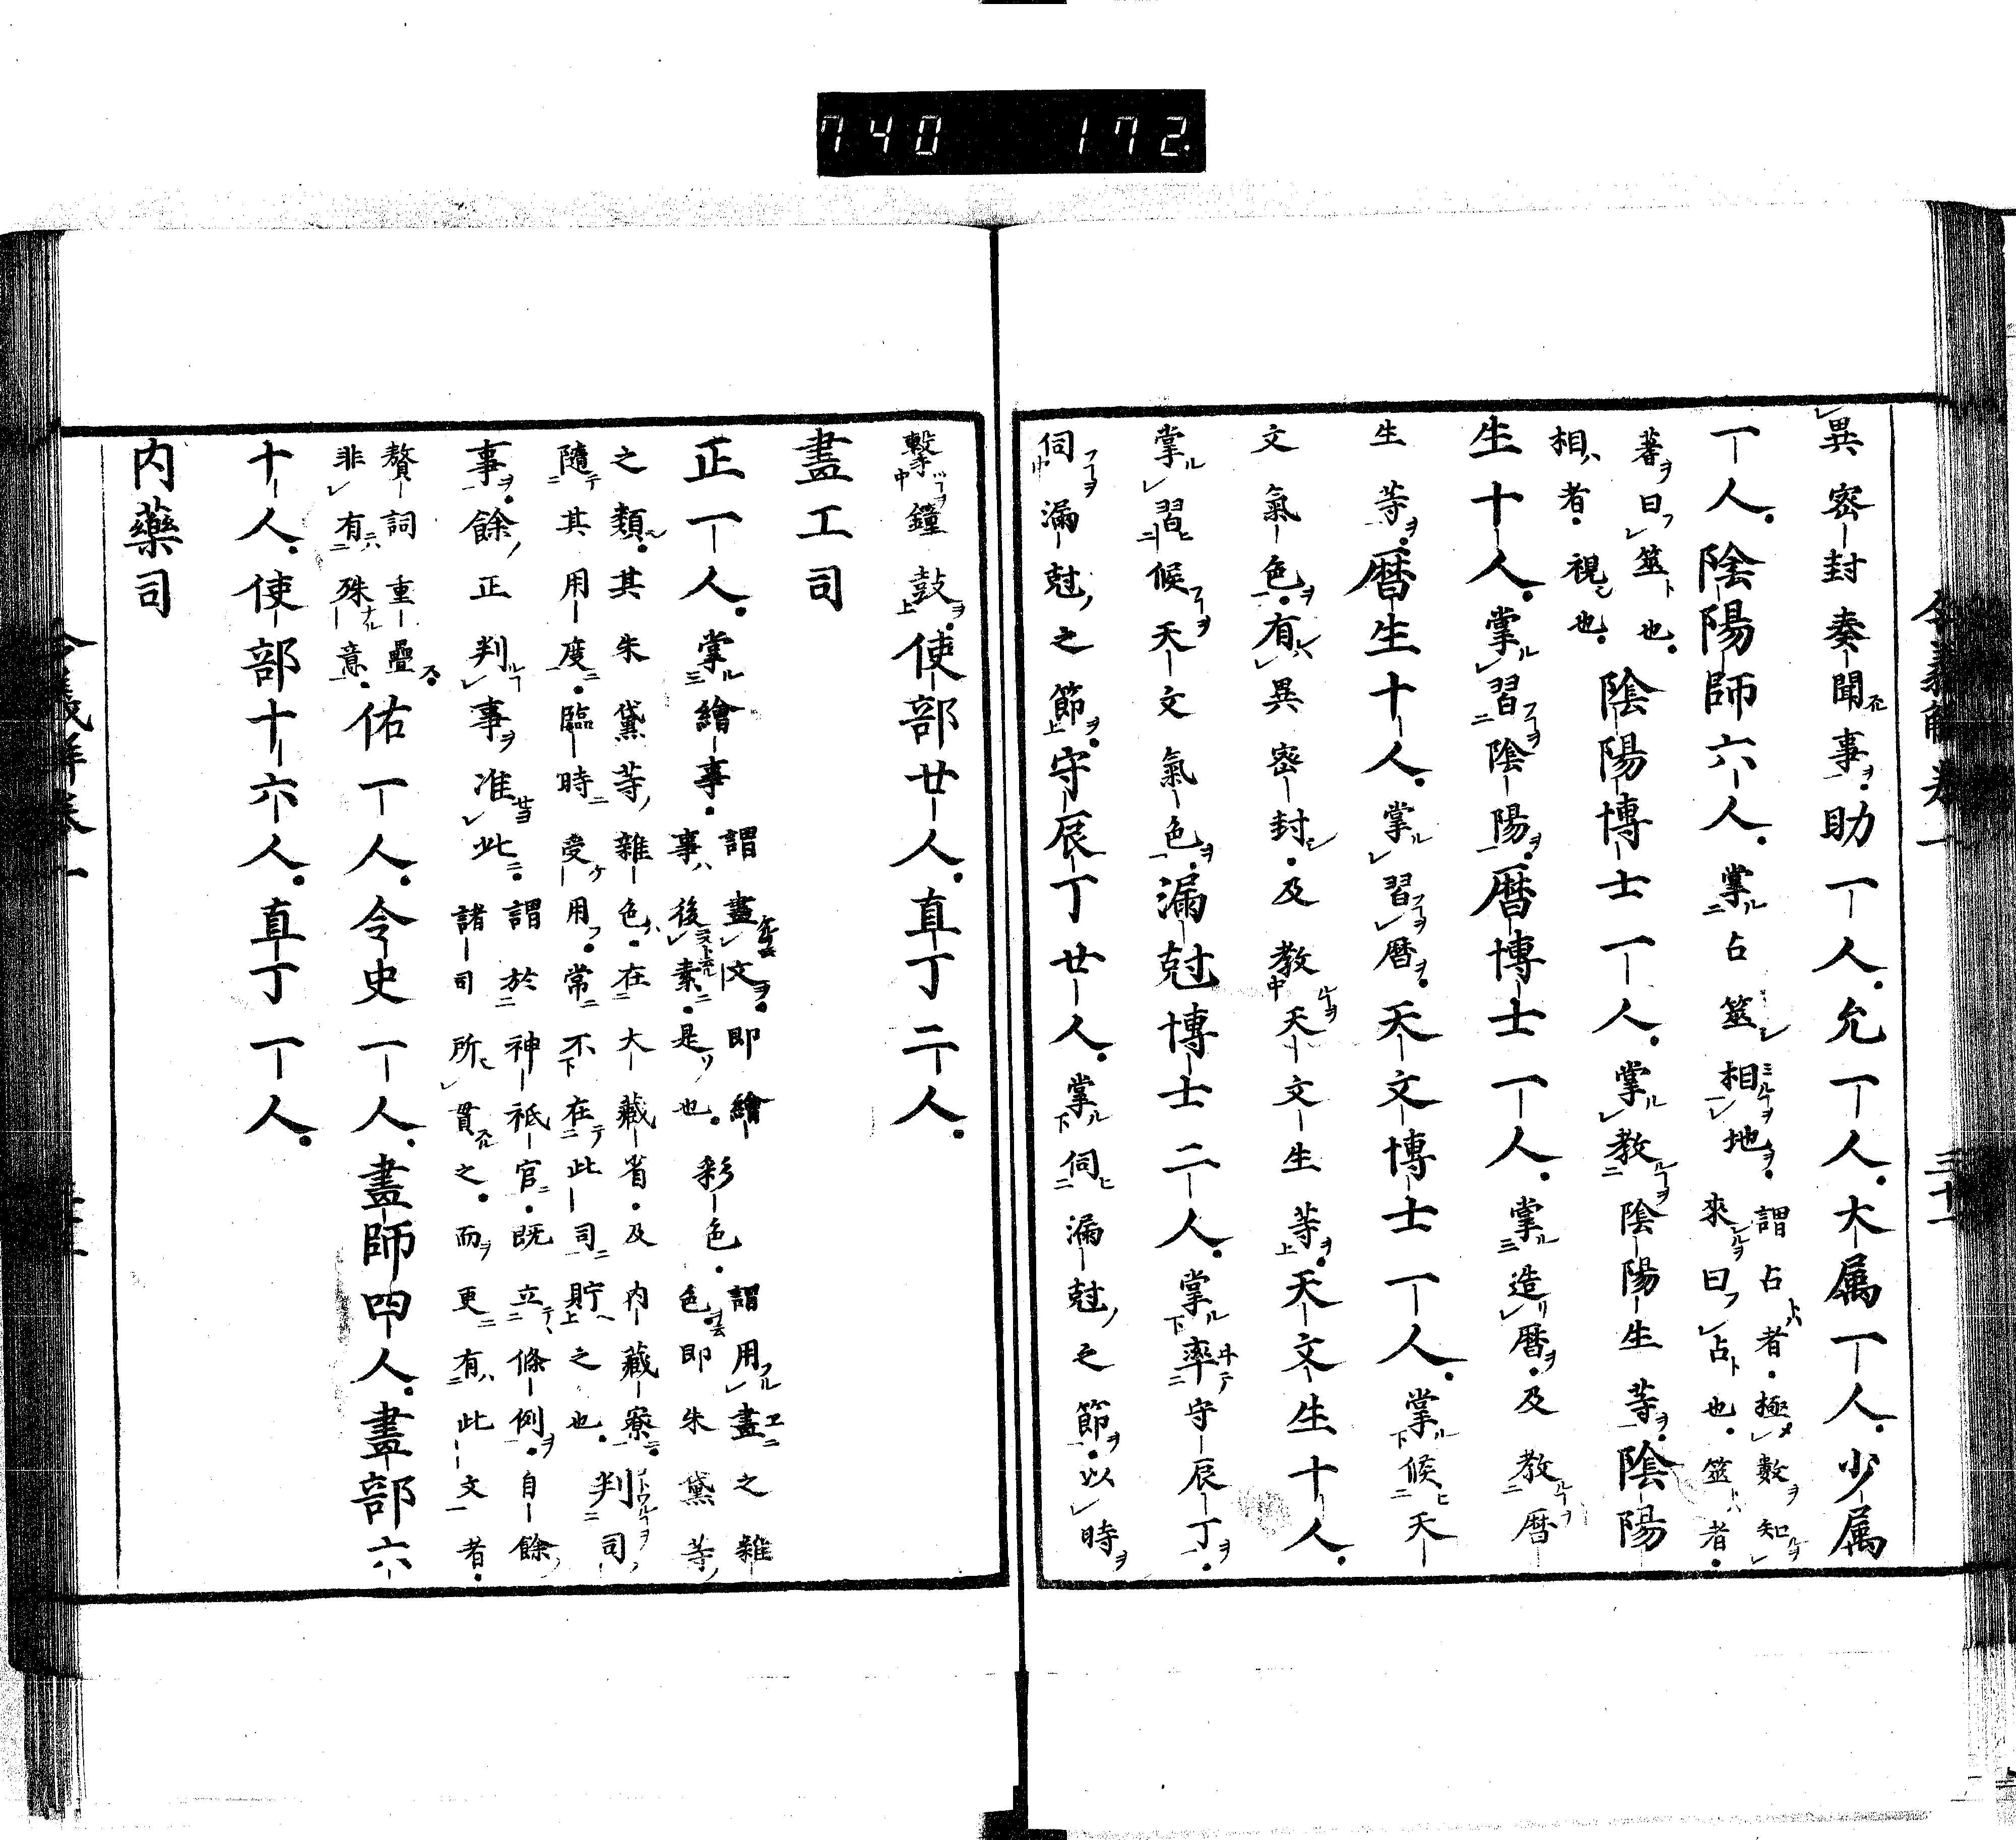 740 172
異密封奏聞事。助一人。允一人。大属一人。少属
一人。陰陽師六人。掌占筮相地。
謂占者。極數知
來曰占也。筮者。
蓍曰筮也。
相者。視也。
陰陽博士一人。掌教陰陽生等。陰陽
生十人。掌習陰陽。暦博士一人。掌造暦。及教暦
生等。暦生十人。掌習暦。天文博士一人。掌候天
文氣色。有異密封。及教天文生等。天文生十人。
掌習候天文氣色。漏尅博士二人。掌率守辰丁。
伺漏尅之節。守辰丁廿人。掌伺漏尅之節。以時
擊鐘鼓。使部廿人。直丁二人。
畫工司
正一人。掌繪事。
謂畫文。即繪
事後素。是也。
彩色。
謂用畫之雜
色。即朱黛等
之類。其朱黛等雜色。在大藏省。及内藏寮。
隨其用度。臨時受用。常不在此司貯之也。
判司
事。餘正判事准此。
謂於神祇官。既立條例。自餘
諸司所貫之。而更有此文者。
贅詞重疊。
非有殊意。
佑一人。令史一人。畫師四人。畫部六
十人。使部十六人。直丁一人。
内藥司